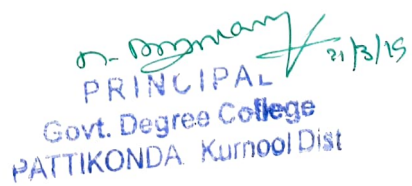 21/3/15
PRINCIPAL
Govt. Degree College
PATTIKONDA Kurnool Dist